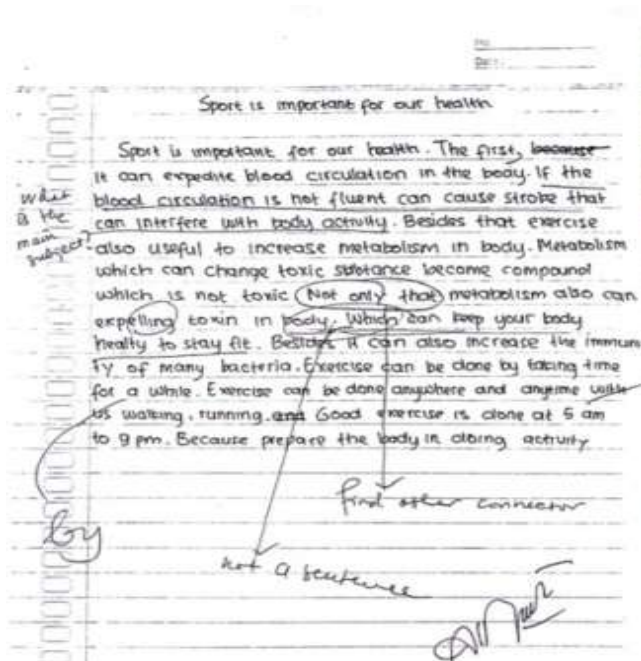 Sport is important for our health
Sport is important for our health. The first, because
it can expedite blood circulation in the body. If the
blood circulation is not fluent can cause stroke that
can interfere with body activity. Besides that exercise
also useful to increase metabolism in body. Metabolism
which can change toxic substance become compound
which is not toxic Not only that metabolism also can
expelling toxin in body. Which can keep your body
healty to stay fit. Besides it can also increase the immuni
ty of many bacteria. Exercise can be done by taking time
for a while. Exercise can be done anywhere and anytime with
us walking, running, and Good exercise is done at 5 am
to 9 pm. Because prepare the body in doing activity
what
is the
main
subject?
find other connector
by
not a sentence